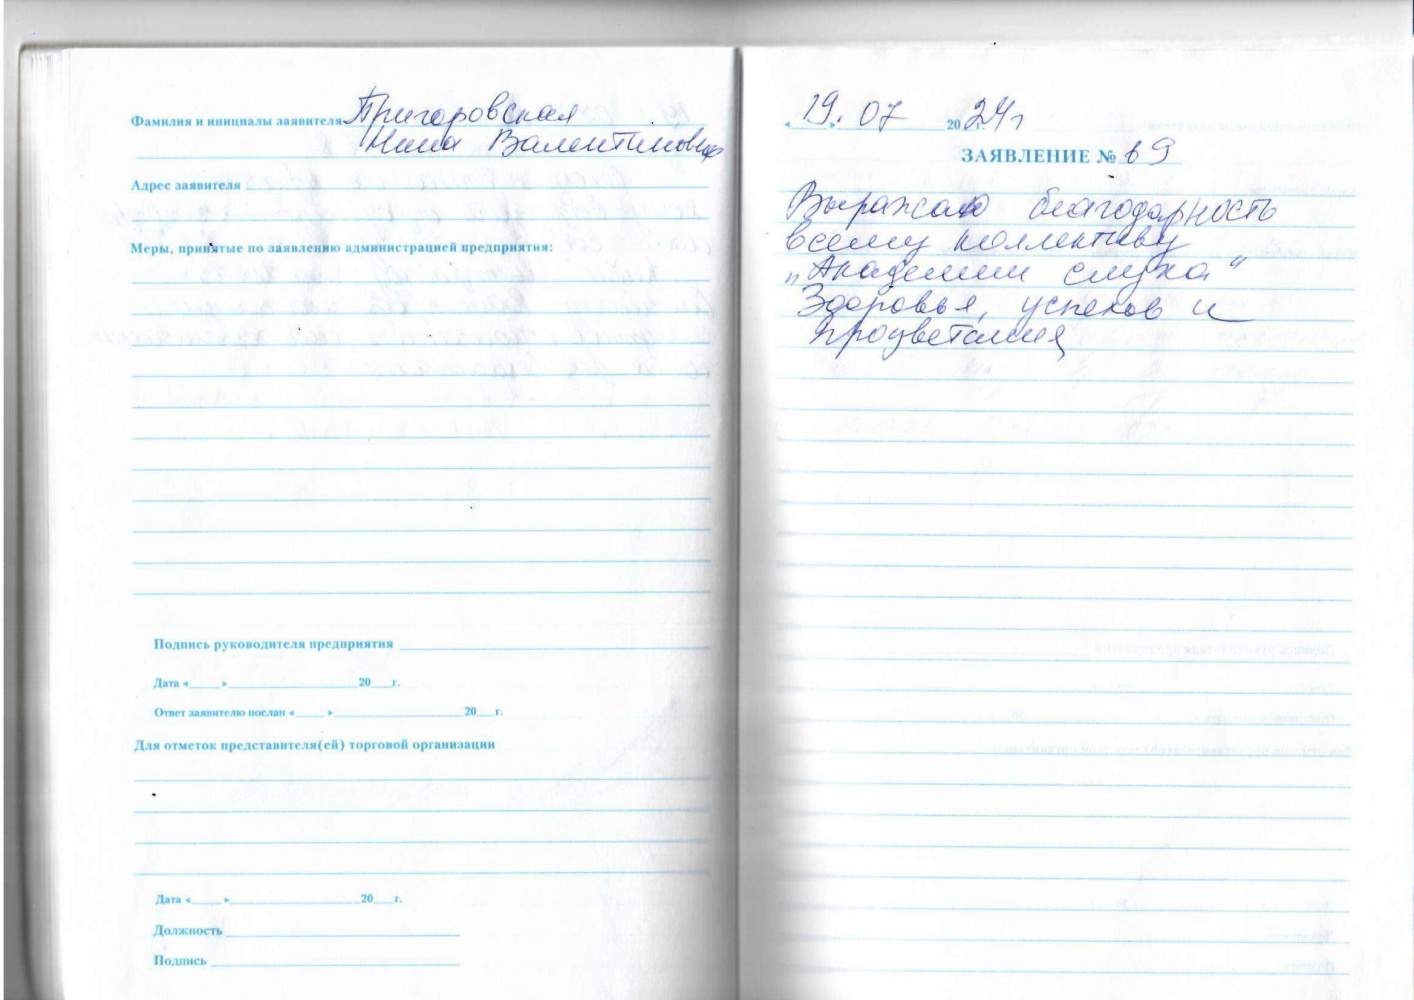 Фамилия и инициалы заявителя Пригоровская
Нина Валентиновна
Адрес заявителя
Меры, принятые по заявлению администрацией предприятия:
Подпись руководителя предприятия
Дата «____» ____ 20__г.
Ответ заявителю послан «____» ____ 20__г.
Для отметок представителя(ей) торговой организации
Дата «____» ____ 20__г.
Должность
Подпись
«19.» 07 2024г
ЗАЯВЛЕНИЕ № 69
Выражаю благодарность
всему коллективу
„Академии слуха“
Здоровья, успехов и
процветания